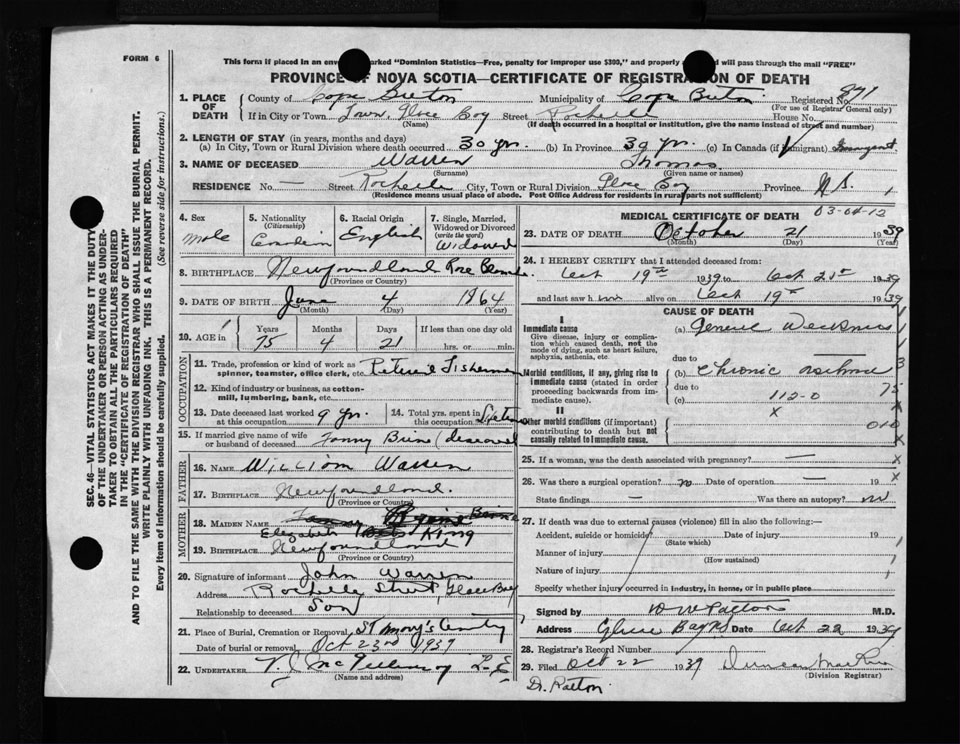 FORM 6
This form if placed in an env marked "Dominion Statistics—Free, penalty for improper use $300," and properly ed will pass through the mail "FREE"
PROVINCE OF NOVA SCOTIA—CERTIFICATE OF REGISTRATION OF DEATH
1. PLACE OF DEATH County of Cape Breton Municipality of Cape Breton Registered No. 891
(For use of Registrar General only)
If in City or Town Town, Glace Bay Street Rochelle House No.
(Name) (If death occurred in a hospital or institution, give the name instead of street and number)
2. LENGTH OF STAY (in years, months and days)
(a) In City, Town or Rural Division where death occurred 30 yrs. (b) In Province 39 yrs. (c) In Canada (if immigrant)
3. NAME OF DECEASED Warren Thomas
(Surname) (Given name or names)
RESIDENCE No. — Street Rochelle City, Town or Rural Division Glace Bay Province N.S.
(Residence means usual place of abode. Post Office Address for residents in rural parts not sufficient)
4. Sex Male
5. Nationality (Citizenship) Canadian
6. Racial Origin English
7. Single, Married, Widowed or Divorced (write the word) Widowed
8. BIRTHPLACE Newfoundland Rose Blanche
(Province or Country)
9. DATE OF BIRTH June 4 1864
(Month) (Day) (Year)
10. AGE if Years 75 Months 4 Days 21 If less than one day old hrs. or min.
OCCUPATION
11. Trade, profession or kind of work as spinner, teamster, office clerk, etc. Retired Fisherman
12. Kind of industry or business, as cotton-mill, lumbering, bank, etc.
13. Date deceased last worked at this occupation 9 yrs.
14. Total yrs. spent in this occupation Lifetime
15. If married give name of wife or husband of deceased Fanny (deceased
FATHER
16. NAME William Warren
17. BIRTHPLACE Newfoundland.
(Province or Country)
MOTHER
18. MAIDEN NAME Elizabeth King
19. BIRTHPLACE Newfoundland
(Province or Country)
20. Signature of informant John Warren
Address Rochelle Street, Glace Bay
Relationship to deceased Son
21. Place of Burial, Cremation or Removal St Mary's Cemetery
Date of burial or removal Oct 23rd 1939
22. UNDERTAKER
(Name and address)
MEDICAL CERTIFICATE OF DEATH
03-04-12
23. DATE OF DEATH October 21 1939
(Month) (Day) (Year)
24. I HEREBY CERTIFY that I attended deceased from:
Oct 19th 1939 to Oct 21st 1939
and last saw h alive on Oct 19th 1939
CAUSE OF DEATH
I
Immediate cause
Give disease, injury or complication which caused death, not the mode of dying, such as heart failure, asphyxia, asthenia, etc.
(a) General Weakness
due to
Morbid conditions, if any, giving rise to immediate cause (stated in order proceeding backwards from immediate cause).
(b) Chronic asthma
due to
(c) 112-0
X
II
Other morbid conditions (if important) contributing to death but not causally related to Immediate cause.
25. If a woman, was the death associated with pregnancy? —
26. Was there a surgical operation? no Date of operation — 19
State findings — Was there an autopsy? no
27. If death was due to external causes (violence) fill in also the following:—
Accident, suicide or homicide? Date of injury 19
(State which)
Manner of injury
(How sustained)
Nature of injury
Specify whether injury occurred in industry, in home, or in public place
Signed by D W Patton M.D.
Address Glace Bay NS Date Oct 22 1939
28. Registrar's Record Number
29. Filed Oct 22 1939 Duncan
(Division Registrar)
Dr. Patton
SEC. 46—VITAL STATISTICS ACT MAKES IT THE DUTY
OF THE UNDERTAKER OR PERSON ACTING AS UNDER-
TAKER TO OBTAIN ALL THE PARTICULARS REQUIRED
IN THE "CERTIFICATE OF REGISTRATION OF DEATH"
AND TO FILE THE SAME WITH THE DIVISION REGISTRAR WHO SHALL ISSUE THE BURIAL PERMIT.
WRITE PLAINLY WITH UNFADING INK. THIS IS A PERMANENT RECORD.
Every item of information should be carefully supplied. (See reverse side for instructions.)